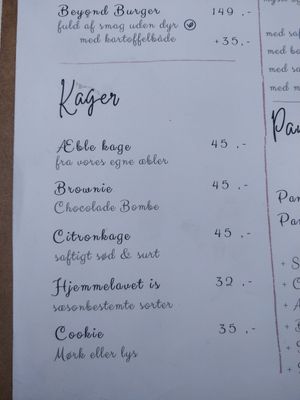 Beyond Burger 149 ,-
fuld af smag uden dyr
med kartoffelbåde +35,-
Kager
Æble kage 45 ,-
fra vores egne æbler
Brownie 45 ,-
Chocolade Bombe
Citronkage 45 ,-
saftigt sød & surt
Hjemmelavet is 32 ,-
sæsonbestemte sorter
Cookie 35 ,-
Mørk eller lys
med saf
med
med sa
med m
Pa
Pan
Pan
+ S
+
+ A
+
+
+